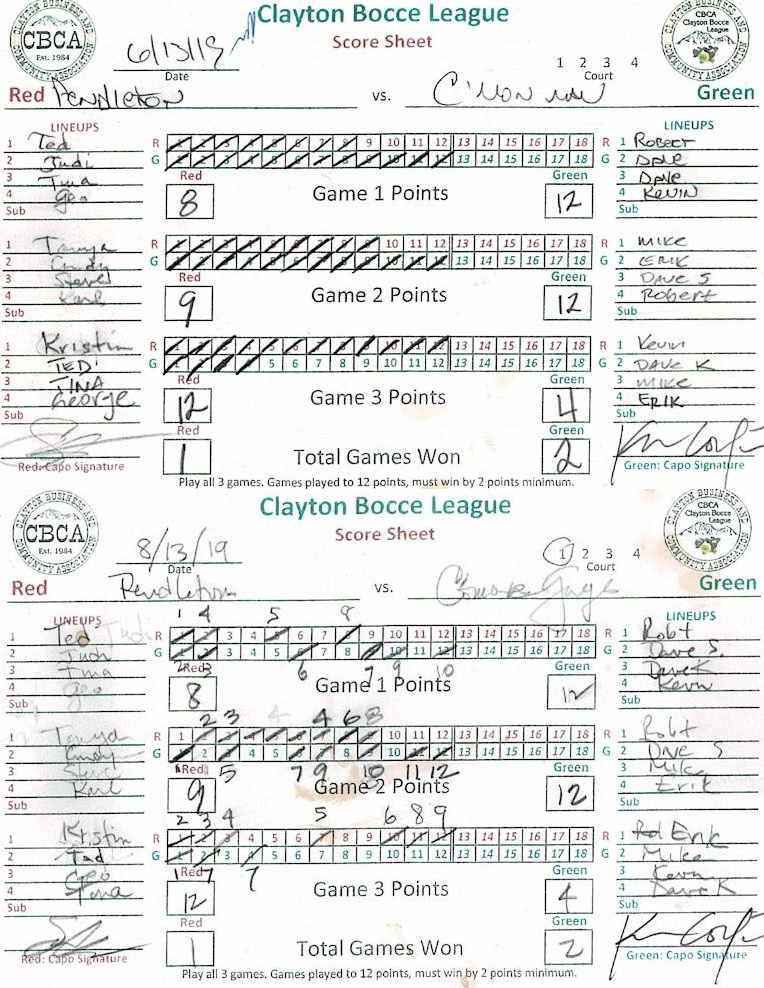 Clayton Bocce League
CLAYTON BUSINESS AND COMMUNITY ASSOCIATION CBCA Est. 1984
CBCA Clayton Bocce League
Score Sheet
6/13/19
Date
1 2 3 4
Court
Red Pendleton vs. C'mon man Green
LINEUPS LINEUPS
1 Ted R 1 2 3 4 5 6 7 8 9 10 11 12 13 14 15 16 17 18 R 1 Robert
2 Judi G 1 2 3 4 5 6 7 8 9 10 11 12 13 14 15 16 17 18 G 2 Dave
3 Tina Red Green 3 Dave
4 Geo 8 Game 1 Points 12 4 Kevin
Sub Sub
1 Tanya R 1 2 3 4 5 6 7 8 9 10 11 12 13 14 15 16 17 18 R 1 Mike
2 Cindy G 1 2 3 4 5 6 7 8 9 10 11 12 13 14 15 16 17 18 G 2 Erik
3 Steve Red Green 3 Dave S
4 Karl 9 Game 2 Points 12 4 Robert
Sub Sub
1 Kristin R 1 2 3 4 5 6 7 8 9 10 11 12 13 14 15 16 17 18 R 1 Kevin
2 TEDi G 1 2 3 4 5 6 7 8 9 10 11 12 13 14 15 16 17 18 G 2 Dave K
3 TINA Red Green 3 Mike
4 George 12 Game 3 Points 4 4 Erik
Sub Red Green Sub
1 Total Games Won 2
Red: Capo Signature Green: Capo Signature
Play all 3 games. Games played to 12 points, must win by 2 points minimum.
Clayton Bocce League
CLAYTON BUSINESS AND COMMUNITY ASSOCIATION CBCA Est. 1984
CBCA Clayton Bocce League
Score Sheet
8/13/19
Date
1 2 3 4
Court
Red Pendleton vs. Green
1 4 5 8
LINEUPS LINEUPS
1 Ted Judi R 1 2 3 4 5 6 7 8 9 10 11 12 13 14 15 16 17 18 R 1 Robt
2 Judi G 1 2 3 4 5 6 7 8 9 10 11 12 13 14 15 16 17 18 G 2 Dave S.
3 Tina 2 Red 3 6 7 9 10 Green 3 Dave K
4 Geo 8 Game 1 Points 12 4 Kevin
Sub Sub
2 3 4 4 6 8
1 Tanya R 1 2 3 4 5 6 7 8 9 10 11 12 13 14 15 16 17 18 R 1 Robt
2 Cindy G 1 2 3 4 5 6 7 8 9 10 11 12 13 14 15 16 17 18 G 2 Dave S
3 Steve 1 Red 5 7 9 10 11 12 Green 3 Mike
4 Karl 9 Game 2 Points 12 4 Erik
Sub Sub
2 3 4 5 6 8 9
1 Kristin R 1 2 3 4 5 6 7 8 9 10 11 12 13 14 15 16 17 18 R 1 Erik
2 Ted G 1 2 3 4 5 6 7 8 9 10 11 12 13 14 15 16 17 18 G 2 Mike
3 Geo 1 Red 7 7 Green 3 Kevin
4 Tina 12 Game 3 Points 4 4 Dave K
Sub Red Green Sub
1 Total Games Won 2
Red: Capo Signature Green: Capo Signature
Play all 3 games. Games played to 12 points, must win by 2 points minimum.